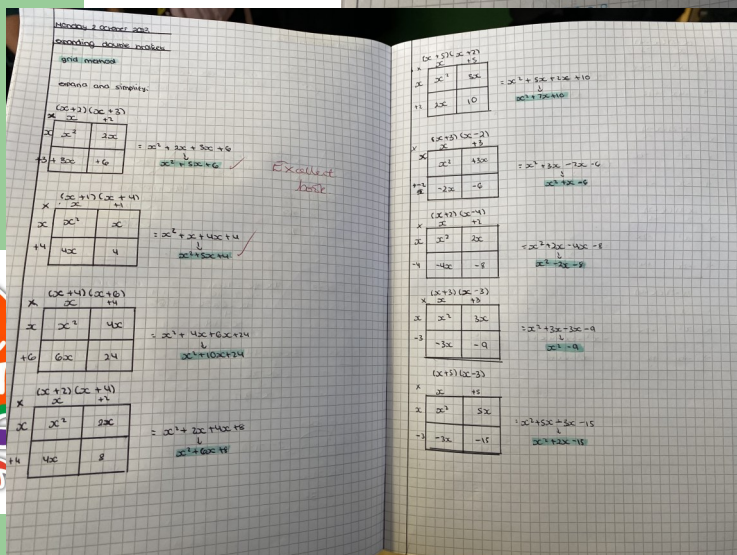 Monday 2 October 2023
expanding double brackets
grid method
expand and simplify.
(x+2)(x+3)
× x +2
x x² 2x
+3 + 3x +6
= x² + 2x + 3x + 6
↓
x² + 5x + 6 ✓
Excellent
work
(x+1)(x+4)
× x +1
x x² x
+4 4x 4
= x² + x + 4x + 4
↓
x² + 5x + 4 ✓
(x+4)(x+6)
× x +4
x x² 4x
+6 6x 24
= x² + 4x + 6x + 24
↓
x² + 10x + 24
(x+2)(x+4)
× x +2
x x² 2x
+4 4x 8
= x² + 2x + 4x + 8
↓
x² + 6x + 8
(x+5)(x+2)
× x +5
x x² 5x
+2 2x 10
= x² + 5x + 2x + 10
↓
x² + 7x + 10
(x+3)(x-2)
× x +3
x x² +3x
-2x -6
= x² + 3x - 2x - 6
↓
x² + x - 6
(x+2)(x-4)
× x +2
x x² 2x
-4 -4x -8
= x² + 2x - 4x - 8
↓
x² - 2x - 8
(x+3)(x-3)
× x +3
x x² 3x
-3 -3x -9
= x² + 3x - 3x - 9
↓
x² - 9
(x+5)(x-3)
× x +5
x x² 5x
-3 -3x -15
= x² + 5x - 3x - 15
↓
x² + 2x - 15